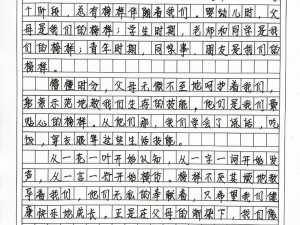 个阶段，总有榜样伴随着我们。婴幼儿时，父
母是我们的榜样；学生时期，老师和同学是我
们的榜样；青年时期，同事、朋友是我们的
榜样。
懵懂时分，父母无微不至地呵护着我们，
影示范地教我们生存的技能，他们是我们最
贴心的榜样。从他们那，我们学会了说话，吃
饭，穿衣服等这些生活技能。
从一花一叶开始认知，从一字一词开始发
声，从一言一行开始模仿，榜样不厌其烦地教
导着我们，他们无私的奉献着，只希望我们健
康快乐地成长。正是在父母的渐染下，我们像